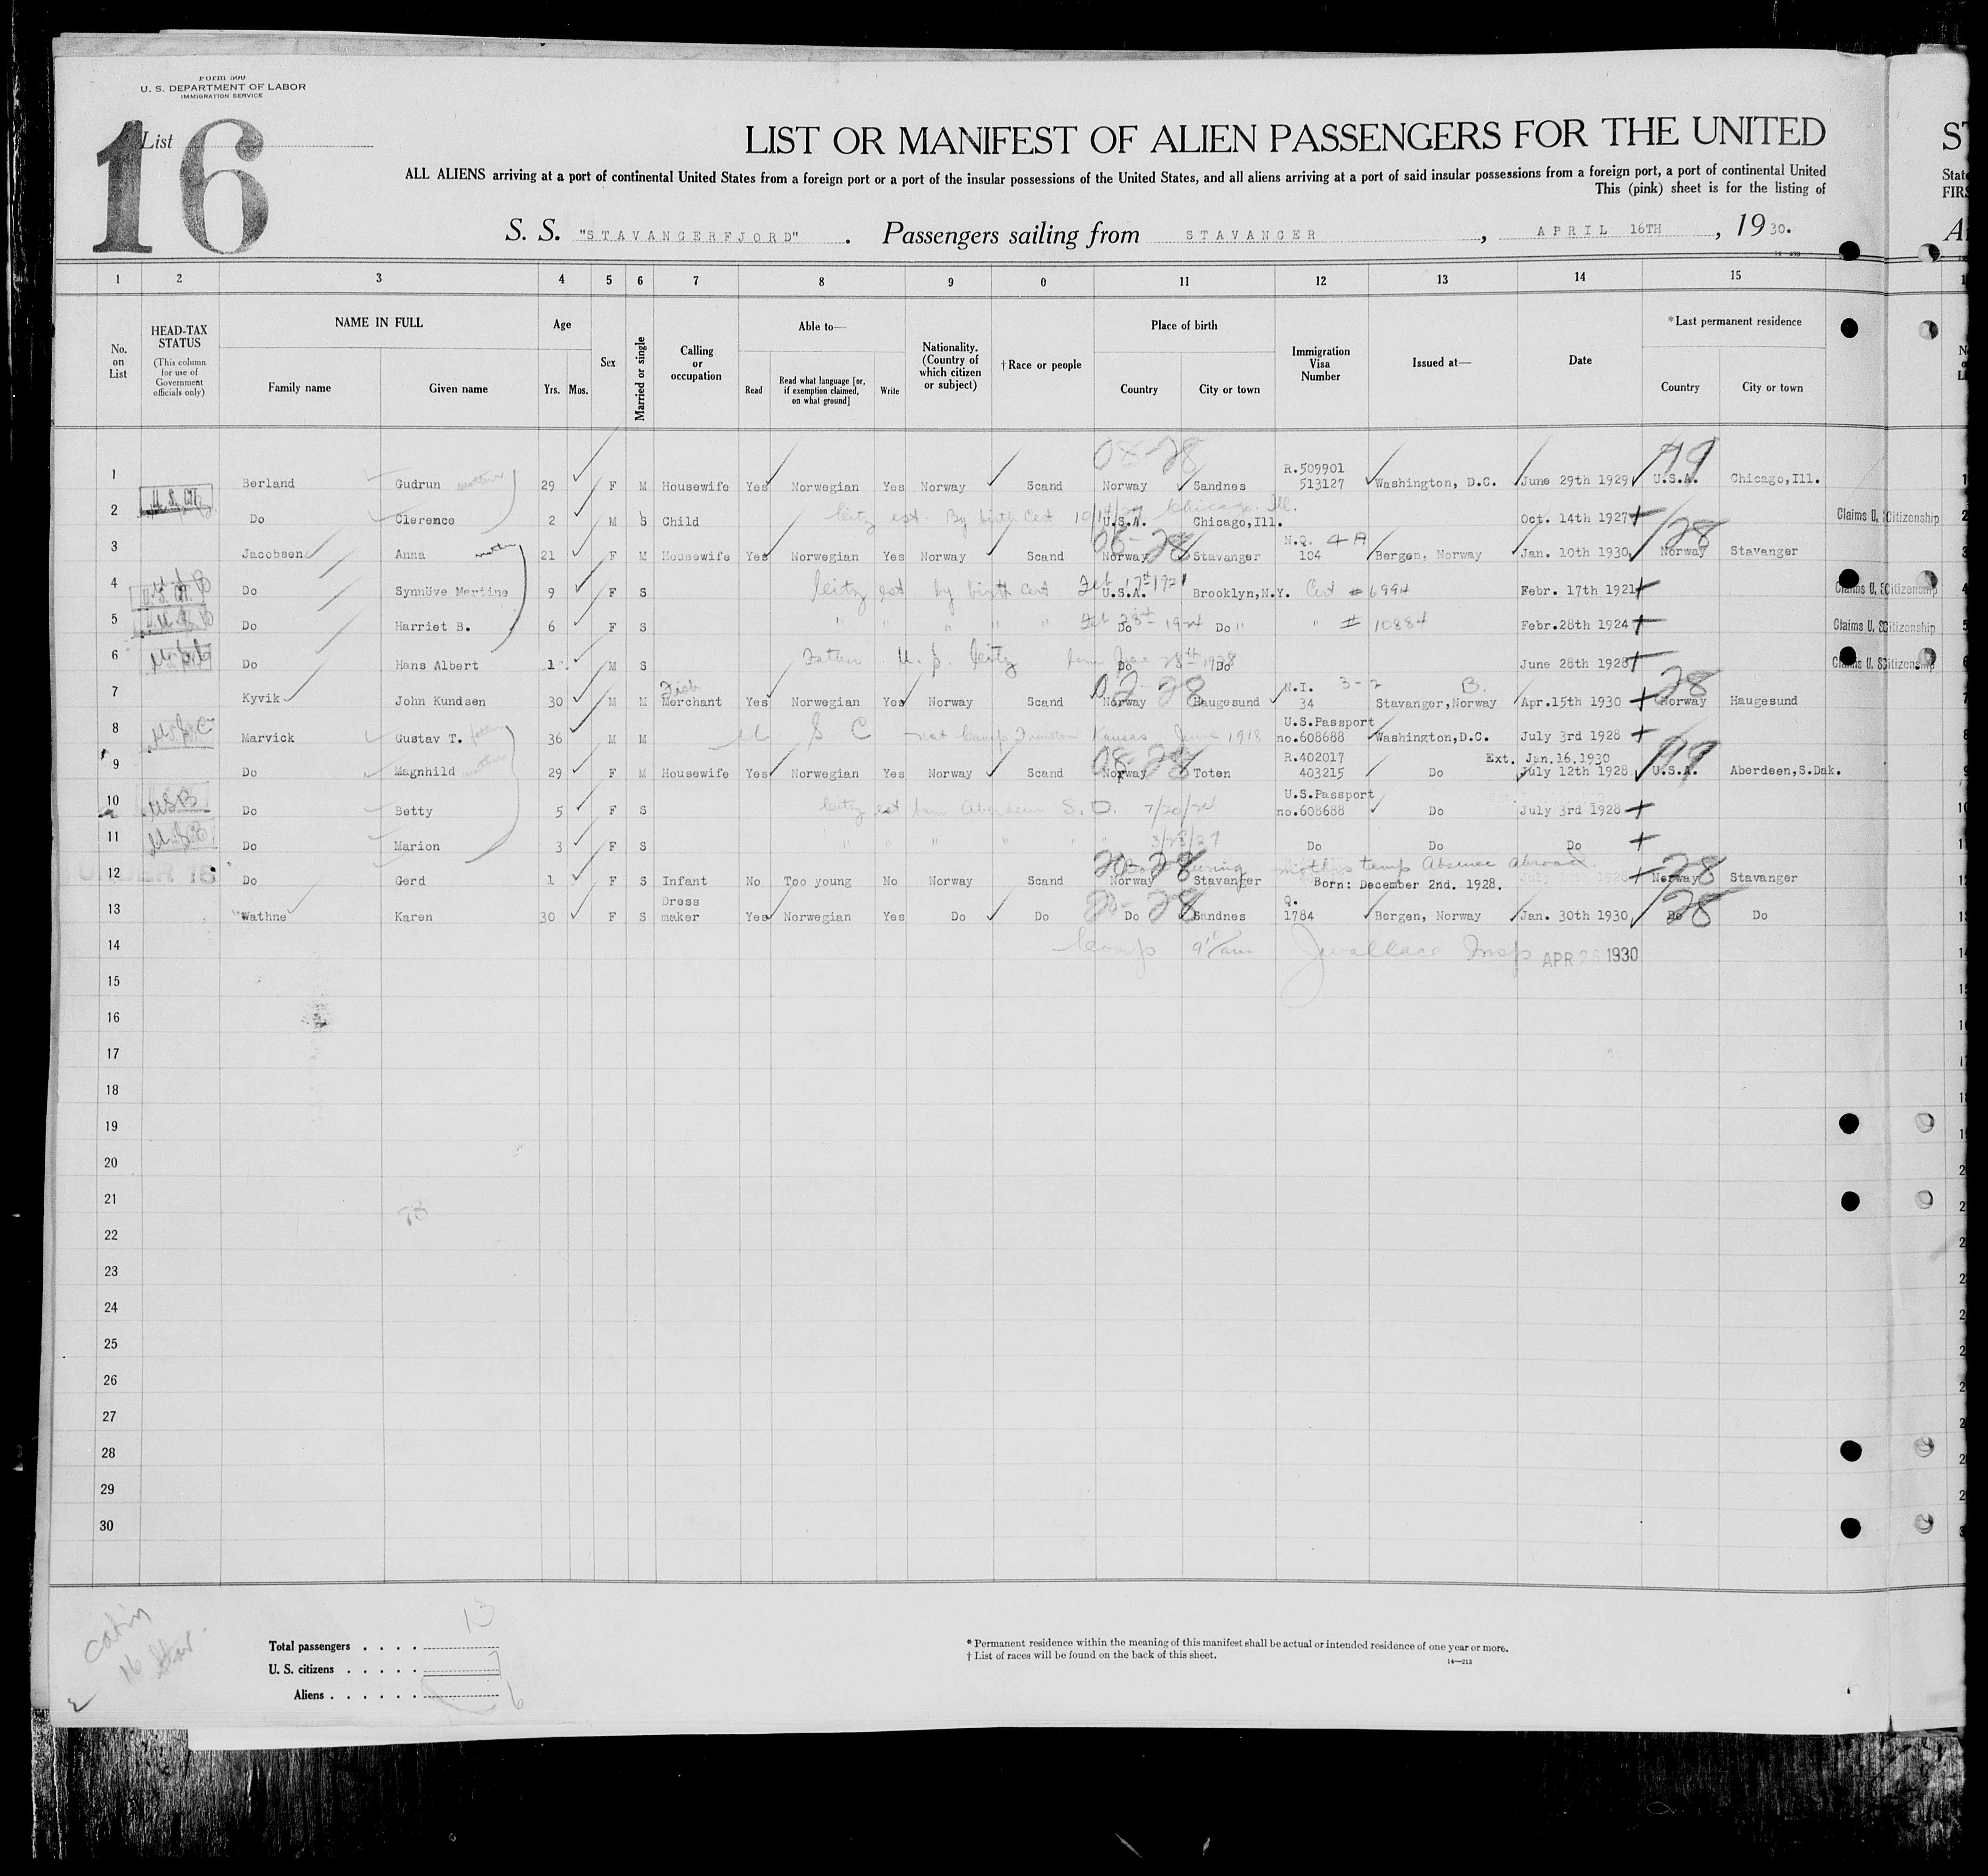 Form 500
U. S. DEPARTMENT OF LABOR
IMMIGRATION SERVICE
List 16
LIST OR MANIFEST OF ALIEN PASSENGERS FOR THE UNITED
ALL ALIENS arriving at a port of continental United States from a foreign port or a port of the insular possessions of the United States, and all aliens arriving at a port of said insular possessions from a foreign port, a port of continental United
This (pink) sheet is for the listing of
S. S. "STAVANGERFJORD" . Passengers sailing from STAVANGER , APRIL 16TH , 1930.
1 2 3 4 5 6 7 8 9 0 11 12 13 14 15
No. on List
HEAD-TAX STATUS (This column for use of Government officials only)
NAME IN FULL
Family name Given name
Age
Yrs. Mos.
Sex
Married or single
Calling or occupation
Able to—
Read
Read what language [or, if exemption claimed, on what ground]
Write
Nationality. (Country of which citizen or subject)
† Race or people
Place of birth
Country City or town
Immigration Visa Number
Issued at—
Date
* Last permanent residence
Country City or town
08-28 R.509901 99
1 Berland Gudrun mother 29 F M Housewife Yes Norwegian Yes Norway Scand Norway Sandnes 513127 Washington, D.C. June 29th 1929 U.S.A. Chicago,Ill.
2 U.S. Cit. Do Clerence 2 M S Child Citz est. By birth Cert 10/14/27 Chicago. Ill. U.S.A. Chicago,Ill. Oct. 14th 1927 Claims U. S Citizenship
08-28 N.Q. 4A 28
3 Jacobsen Anna mother 21 F M Housewife Yes Norwegian Yes Norway Scand Norway Stavanger 104 Bergen, Norway Jan. 10th 1930 Norway Stavanger
4 Do Synnöve Martine 9 F S Citz est by birth Cert Feb 17th 1921 U.S.A. Brooklyn,N.Y. Cert #6994 Febr. 17th 1921 Claims U. S Citizenship
5 Do Harriet B. 6 F S " " " " " Feb 28th 1924 Do Do " " # 10884 Febr.28th 1924 Claims U. S Citizenship
6 Do Hans Albert 1 M S Father U. S. Citz born June 28th 1928 Do Do June 28th 1928 Claims U. S Citizenship
Fish 28 N.I. 3-2 B. 28
7 Kyvik John Kundsen 30 M M Merchant Yes Norwegian Yes Norway Scand Norway Haugesund 34 Stavanger,Norway Apr.15th 1930 Norway Haugesund
U.S.Passport
8 U.S.C Marvick Gustav T. father 36 M M U. S. C nat Camp Funston Kansas June 1918 no.608688 Washington,D.C. July 3rd 1928
08-28 R.402017 Ext. Jan.16.1930 99
9 Do Magnhild mother 29 F M Housewife Yes Norwegian Yes Norway Scand Norway Toten 403215 Do July 12th 1928 U.S.A. Aberdeen,S.Dak.
U.S.Passport
10 USB Do Betty 5 F S Citz est born Aberdeen S.D. 7/20/24 no.608688 Do July 3rd 1928
11 Do Marion 3 F S " " " " " 3/23/27 Do Do Do
20-28 Born during mothers temp Absence abroad. 28
12 UNDER 16 Do Gerd 1 F S Infant No Too young No Norway Scand Norway Stavanger Born: December 2nd. 1928. Norway Stavanger
Dress 28 Q. 28
13 Wathne Karen 30 F S maker Yes Norwegian Yes Do Do Do Sandnes 1784 Bergen, Norway Jan. 30th 1930 Do Do
14 Comp 9 am JWallace Insp APR 26 1930
15
16
17
18
19
20
21
78
22
23
24
25
26
27
28
29
30
Cabin
Total passengers . . . . 13
U. S. citizens . . . . . 7
Aliens . . . . . . 6
* Permanent residence within the meaning of this manifest shall be actual or intended residence of one year or more.
† List of races will be found on the back of this sheet.
14—213